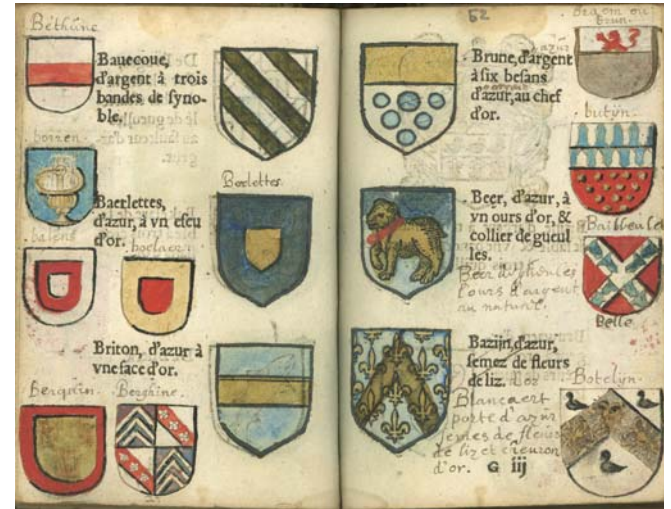 Béthune
Bauecoue,
d'argent à trois
bandes de syno-
ble.
Baerlettes,
d'azur, à vn escu
d'or.
Baelettes.
boelaer
Briton, d'azur à
vne face d'or.
Berquin.
Berghine.
52
brun.
Brune, d'argent
à six besans
d'azur, au chef
d'or.
butijn.
Beer, d'azur, à
vn ours d'or, &
collier de gueul
les.
l'ours d'argent
au naturel.
Belle.
Bazijn, d'azur,
semez de fleurs
de liz. d'or
Blancaert
porte d'azur
semes de fleurs
de liz et cheuron
d'or. G iij
Botelyn.